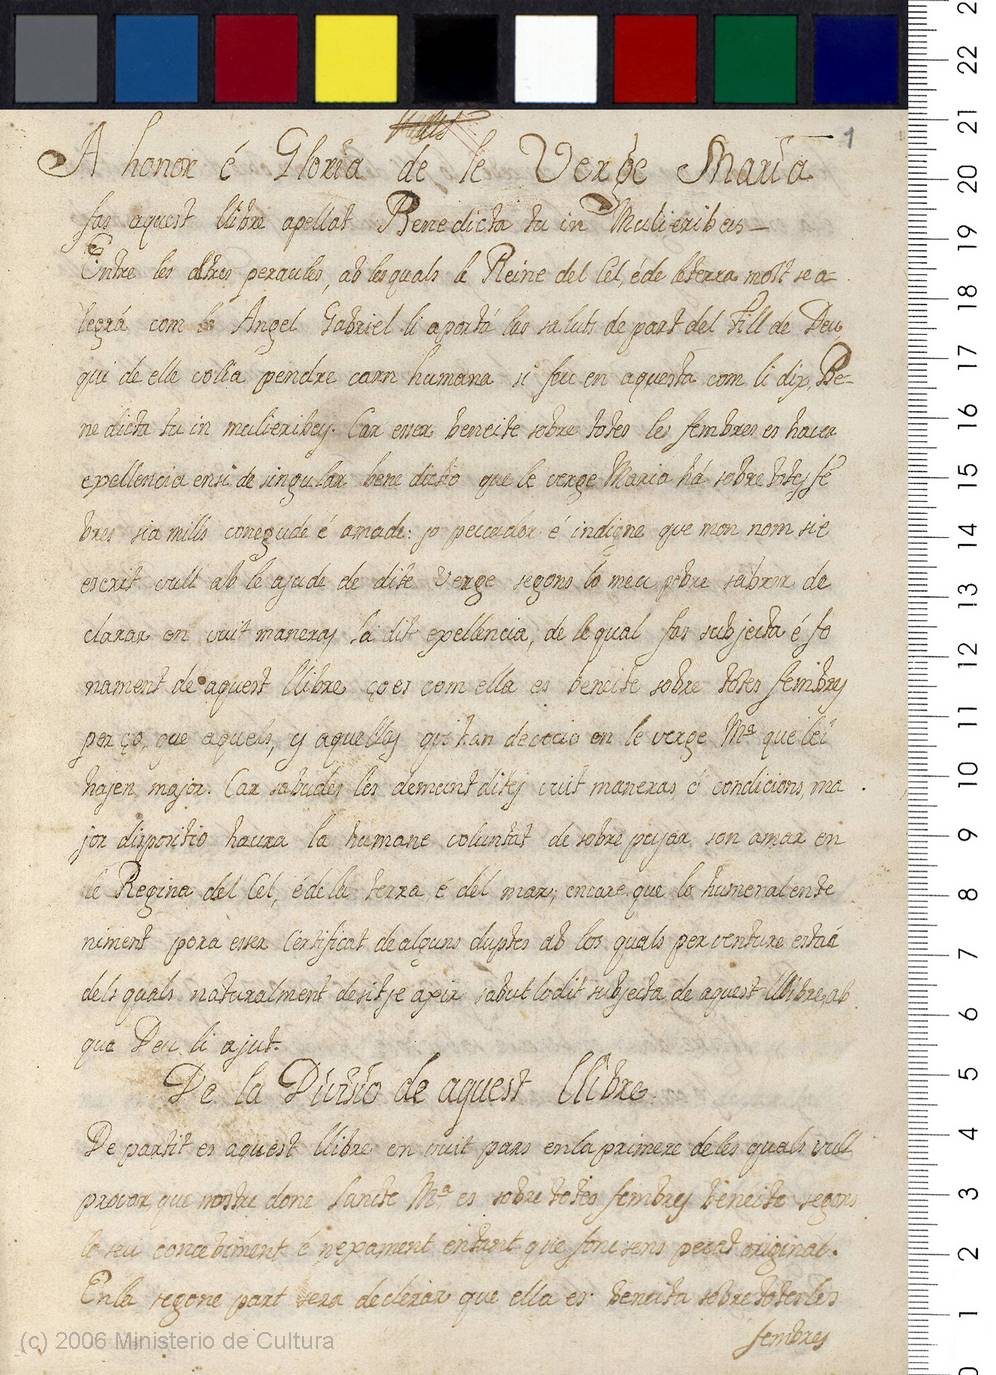 1
A honor é Gloria de le Verge Maria
fas aquest llibre apellat Benedicta tu in Mulieribus
Entre les altres peraules, ab les quals le Reine del Cel, é de le terra molt se a-
legrá com lo Angel Gabriel li aportá las saluts de part del Fill de Deu
qui de ella volia pendre carn humana si fou en aquesta com li dix, Be-
nedicta tu in mulieribus. Car esser beneite sobre totes les fembres es haver
expellencia en si de singular benedictio que le verge Maria há sobre totes fé
bres sia mills conegude é amade: jo peccador é indigne que mon nom sie
escrit vull ab le ajude de dite Verge segons lo meu pobre sabrer de
clarar en vuit maneras la dit expellencia, de le qual fas subjecta é fo
nament de aquest llibre ço es com ella es beneite sobre totes fembres
per ço, que aquels, y aquellas qui han devocio en le verge Mª que lei
hajen major. Car sabudes les demunt dites vuit maneras é condicions, ma
jor dispositio haura la humane voluntat de sobre pujar son amar en
le Regina del Cel, é de la terra é del mar; encare que lo humeral ente
niment pora esser Certificat de alguns duptes ab los quals per venture estaé
dels quals naturalment desitje axir sabut lo dit subjecta de aquest llibre, ab
que Deu li ajut.
De la Divisio de aquest llibre
De partit es aquest llibre en vuit pars en la primere de les quals vull
provar, que nostre done Sancte Mª es sobre totes fembres beneite segons
lo seu concebiment é nexament entant que fonc sens pecat original.
En la segone part sera declerar que ella es beneita sobre totes les
fembres
(c) 2006 Ministerio de Cultura
2
22
21
20
19
18
17
16
15
14
13
12
11
10
9
8
7
6
5
4
3
2
1
0